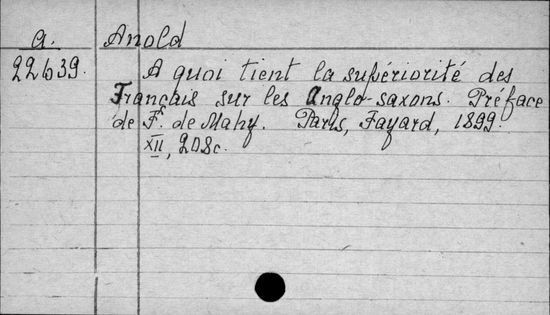 a. Anold
22639. A quoi tient la supériorité des
Français sur les Anglo-saxons. Préface
de Fs. de Mahy. Paris, Fayard, 1899.
XII, 208c.